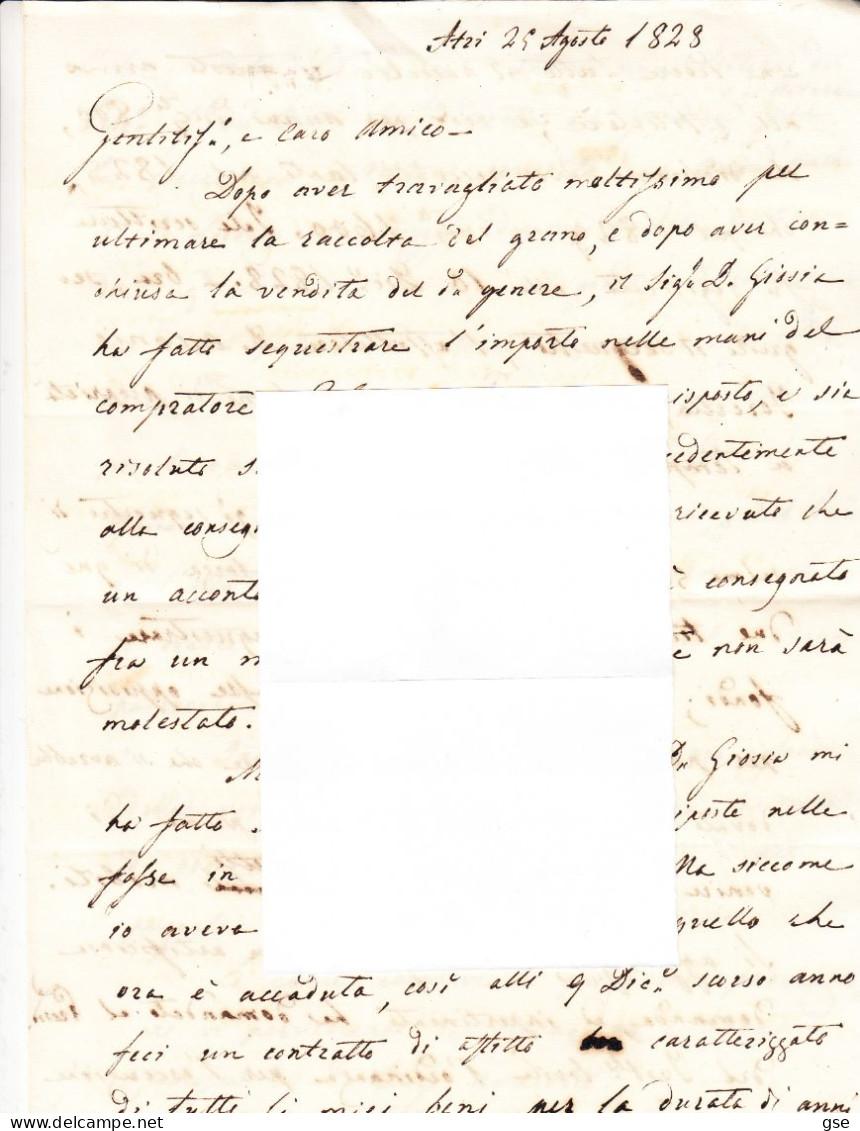 Atri 25 Agosto 1828
Gentilisſ.º, e Caro Amico –
Dopo aver travagliato moltiſsimo per
ultimare la raccolta del grano, e dopo aver con=
chiusa la vendita del dº genere, il Sigr D. Giosia
ha fatto sequestrare l'importo nelle mani del
compratore isposto, e sia
risoluto s edentemente
alla conseg ricevuto che
un acconto consegnato
fra un e non sarà
molestato.
M Dn Giosia mi
ha fatto iposte nelle
foſse in Ma siccome
io aveva quello che
ora è accaduta, così alli 9 Dice scorso anno
feci un contratto di affitto caratterizzato
di tutti li miei beni per la durata di anni
gse